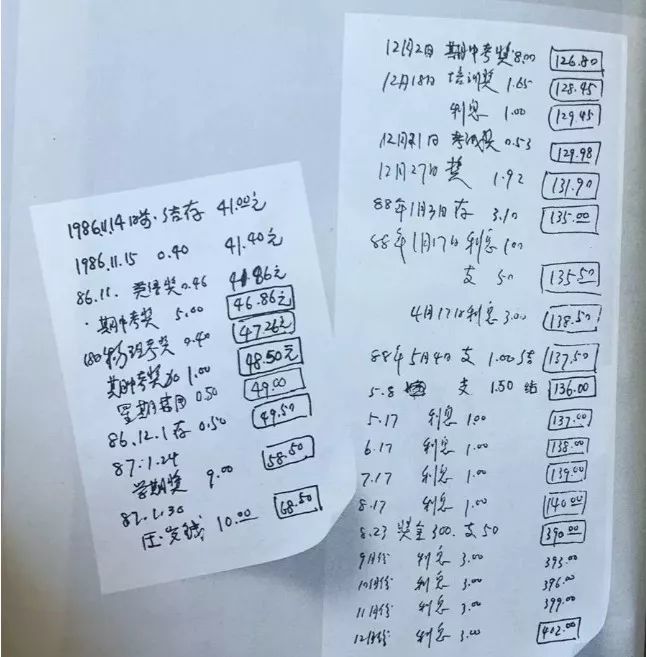 1986.11.14日前、结存 41.00元
1986.11.15 0.40 41.40元
86.11. 英语奖0.46 41.86元
期中考奖 5.00 46.86元
物理考奖 0.40 47.26元
期中考奖加 1.00 48.50元
星期 0.50 49.00
86.12.1存 0.50 49.50
87.1.24
学期奖 9.00 58.50
87.1.30
压岁钱 10.00 68.50
12月2日 期中考奖 8.00 126.80
12月18日 培训奖 1.65 128.45
利息 1.00 129.45
12月21日 考试奖 0.53 129.98
12月27日 奖 1.92 131.90
88年1月3日存 3.10 135.00
88年1月17日利息 1.00
支 50 135.50
4月17日利息 3.00 138.50
88年5月4日 支 1.00 结 137.50
5.8 支 1.50 结 136.00
5.17 利息 1.00 137.00
6.17 利息 1.00 138.00
7.17 利息 1.00 139.00
8.17 利息 1.00 140.00
8.23 奖金300. 支50 390.00
9月份 利息 3.00 393.00
10月份 利息 3.00 396.00
11月份 利息 3.00 399.00
12月份 利息 3.00 402.00